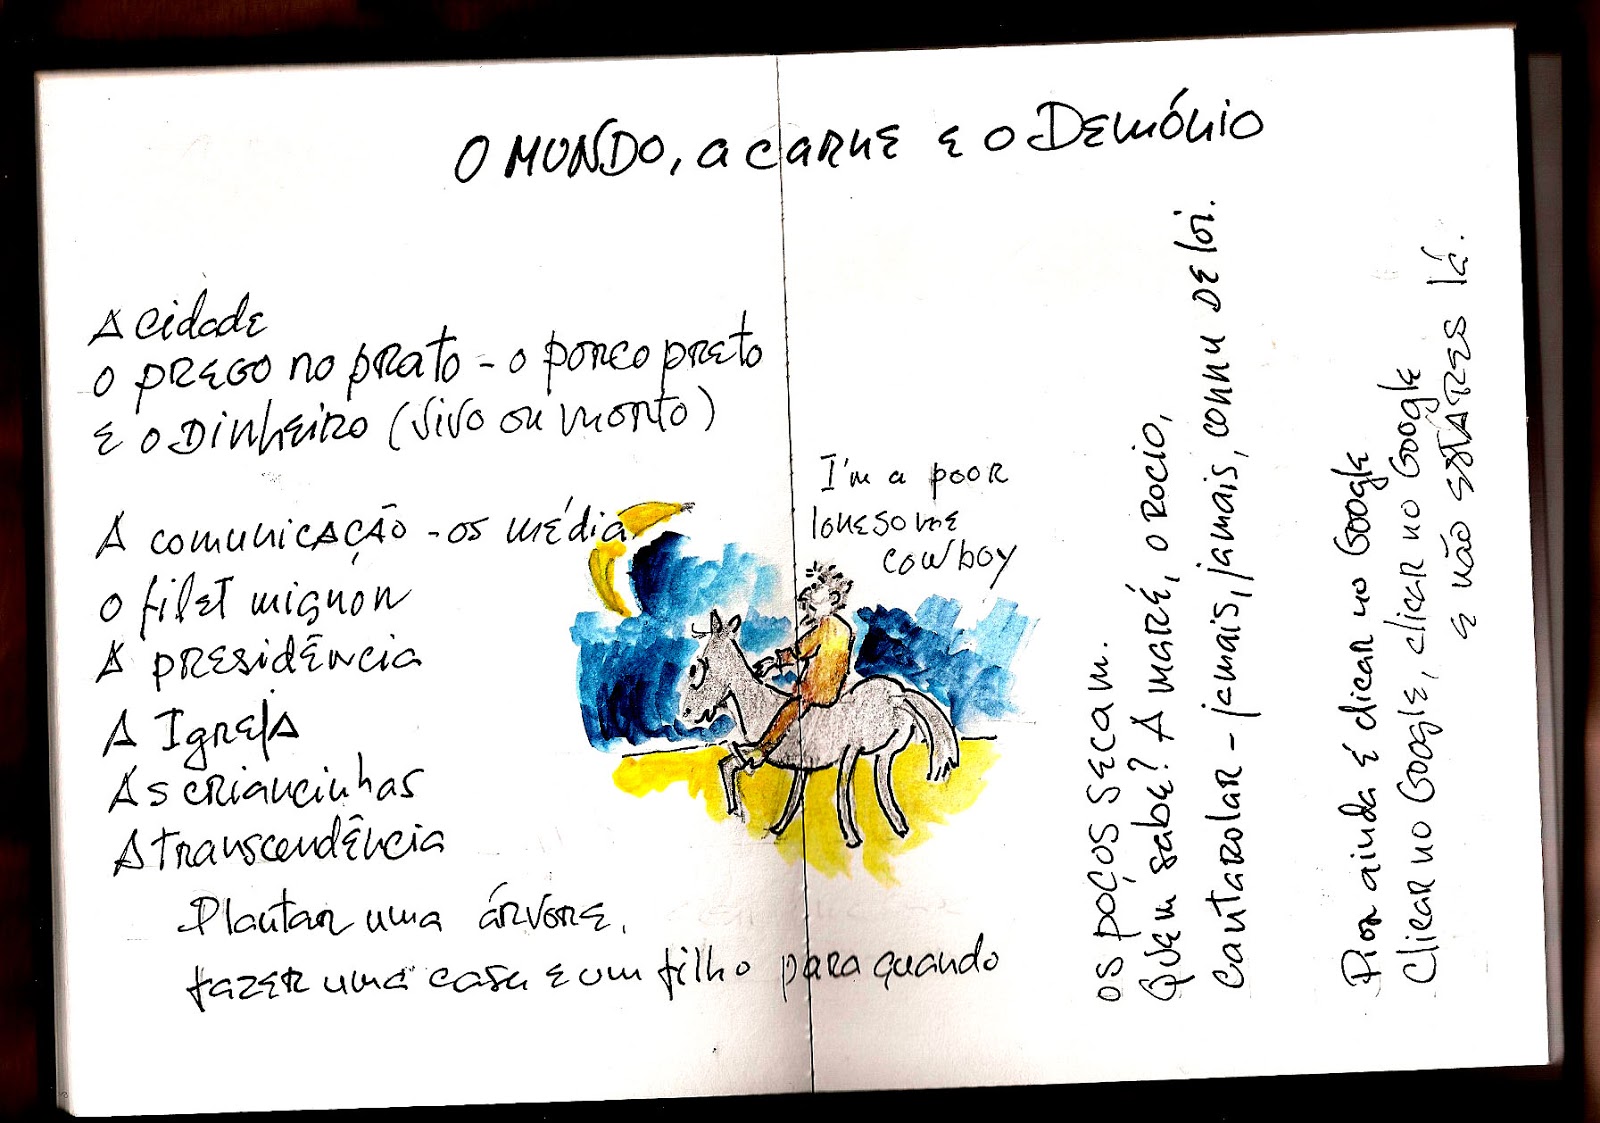 O MUNDO, a CARNE e o DEMÓNIO
A cidade
o PREGO no prato - o porco preto
e o DINHEIRO (vivo ou morto)
A comunicação - os média
o filet mignon
A presidência
A Igreja
As criancinhas
A transcendência
Plantar uma árvore,
fazer uma casa e um filho para quando
I'm a poor
lonesome
cowboy
os poços secam.
Quem sabe? A maré, o rocio,
Cantarolar - jamais, jamais, connu de loi.
Pior ainda é clicar no Google
Clicar no Google, clicar no Google
e não ESTARES lá.